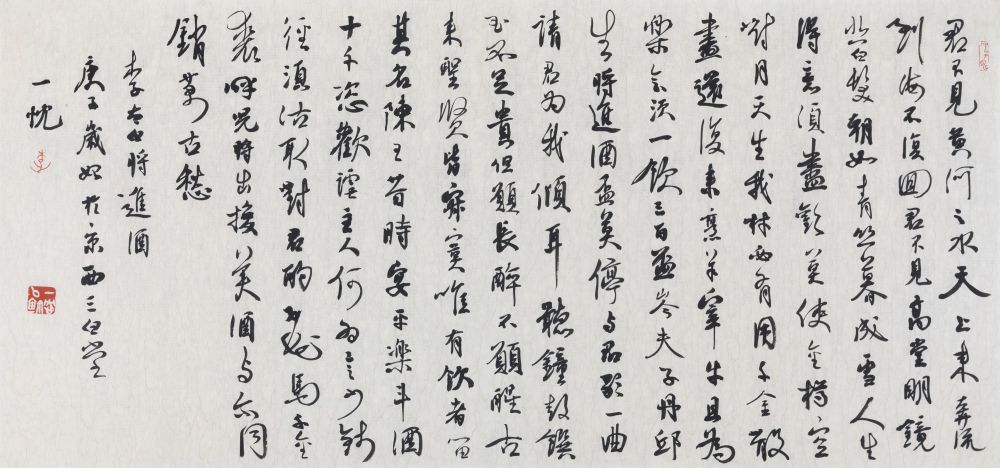 君不見黄河之水天上来奔流
到海不復回君不見高堂明鏡
悲白髮朝如青丝暮成雪人生
得意須盡歡莫使金樽空
對月天生我材必有用千金散
盡還復来烹羊宰牛且為
樂会須一飲三百盃岑夫子丹邱
生将進酒盃莫停与君歌一曲
請君为我傾耳聽鐘鼓饌
玉不足貴但願長醉不願醒古
来聖贤皆寂寞唯有飲者留
其名陳王昔時宴平樂斗酒
十千恣歡謔主人何为言少錢
徑須沽取對君酌五花馬千金
裘呼児将出換美酒与尔同
銷萬古愁
李太白将進酒
庚子歲初於京西三白堂
一忱